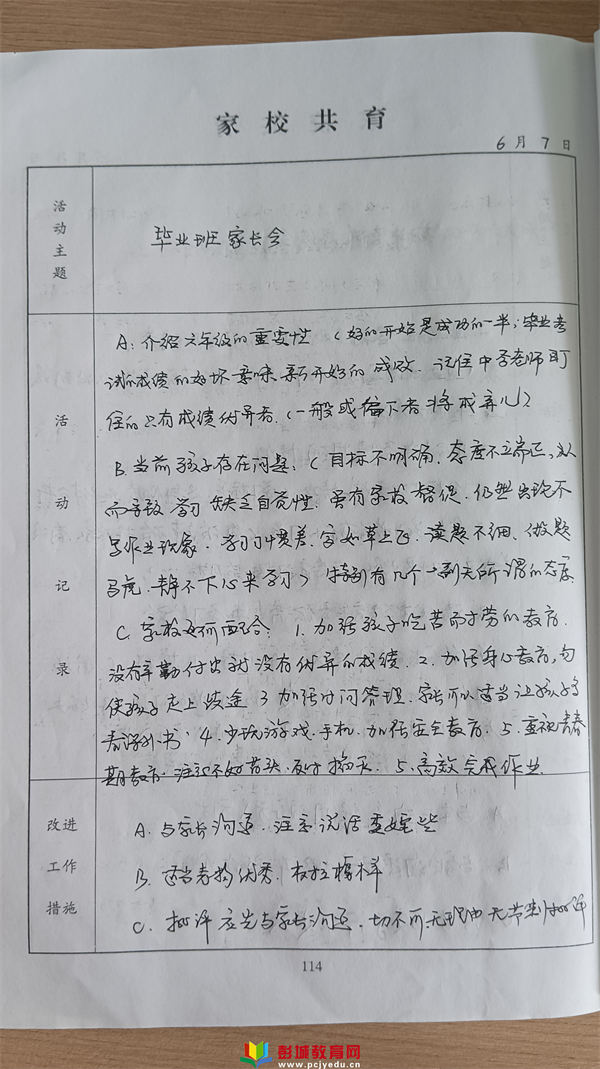 家校共育
6月7日
活动主题
毕业班家长会
活动记录
A: 介绍六年级的重要性 (好的开始是成功的一半; 毕业考
试的成绩的好坏意味新开始的成败. 记住中学老师盯
住的只有成绩优异者. (一般或偏下者将成弃儿)
B. 当前孩子存在问题: ( 目标不明确. 态度不端正, 从
而导致学习缺乏自觉性. 虽有家校督促. 仍然出现不
写作业现象. 学习习惯差. 字如草上飞. 读题不细. 做题
马虎. 静不下心来学习) 特别有几个一副无所谓的态度
C. 家校如何配合: 1. 加强孩子吃苦耐劳的教育.
没有辛勤付出就没有优异的成绩. 2. 加强身心教育, 勿
使孩子走上歧途 3 加强时间管理. 家长可以适当让孩子多
看课外书 4. 少玩游戏. 手机. 加强安全教育. 5. 重视青春
期教育. 注意不好苗头. 及时掐灭. 5. 高效完成作业.
改进工作措施
A. 与家长沟通. 注意说话委婉些
B. 适当表扬优秀. 树立榜样
C. 批评应先与家长沟通. 切不可无理由无节制批评
114
彭城教育网
www.pcjyedu.cn